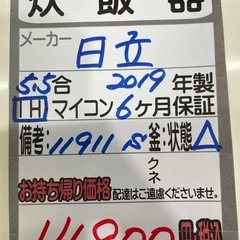 炊飯器
メーカー 日立
5.5合 2019年製
IH マイコン 6ヶ月保証
備考: 11911 S 釜:状態 △
クネ
お持ち帰り価格 配達はご遠慮くださいませ。